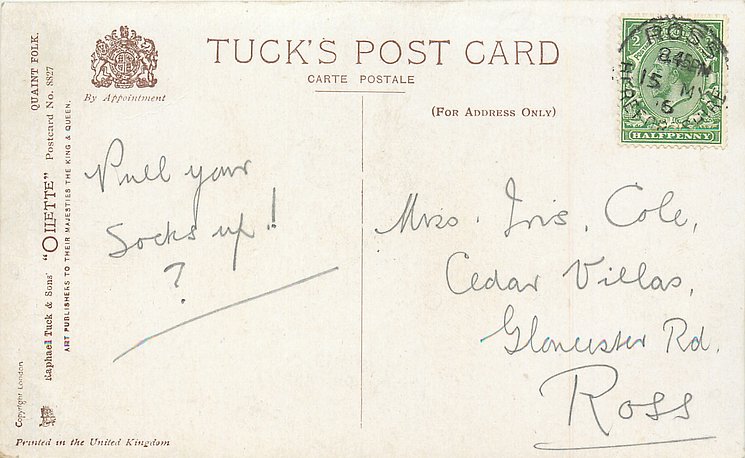 TUCK'S POST CARD
CARTE POSTALE
By Appointment
(For Address Only)
QUAINT FOLK.
Raphael Tuck & Sons' "OILETTE" Postcard No. 8827
ART PUBLISHERS TO THEIR MAJESTIES THE KING & QUEEN.
Copyright London
Printed in the United Kingdom
Pull your
Socks up!
?
Miss. Iris. Cole,
Cedar Villas,
Gloucester Rd.
Ross
ROSS
8.45PM
15 MY
HALFPENNY